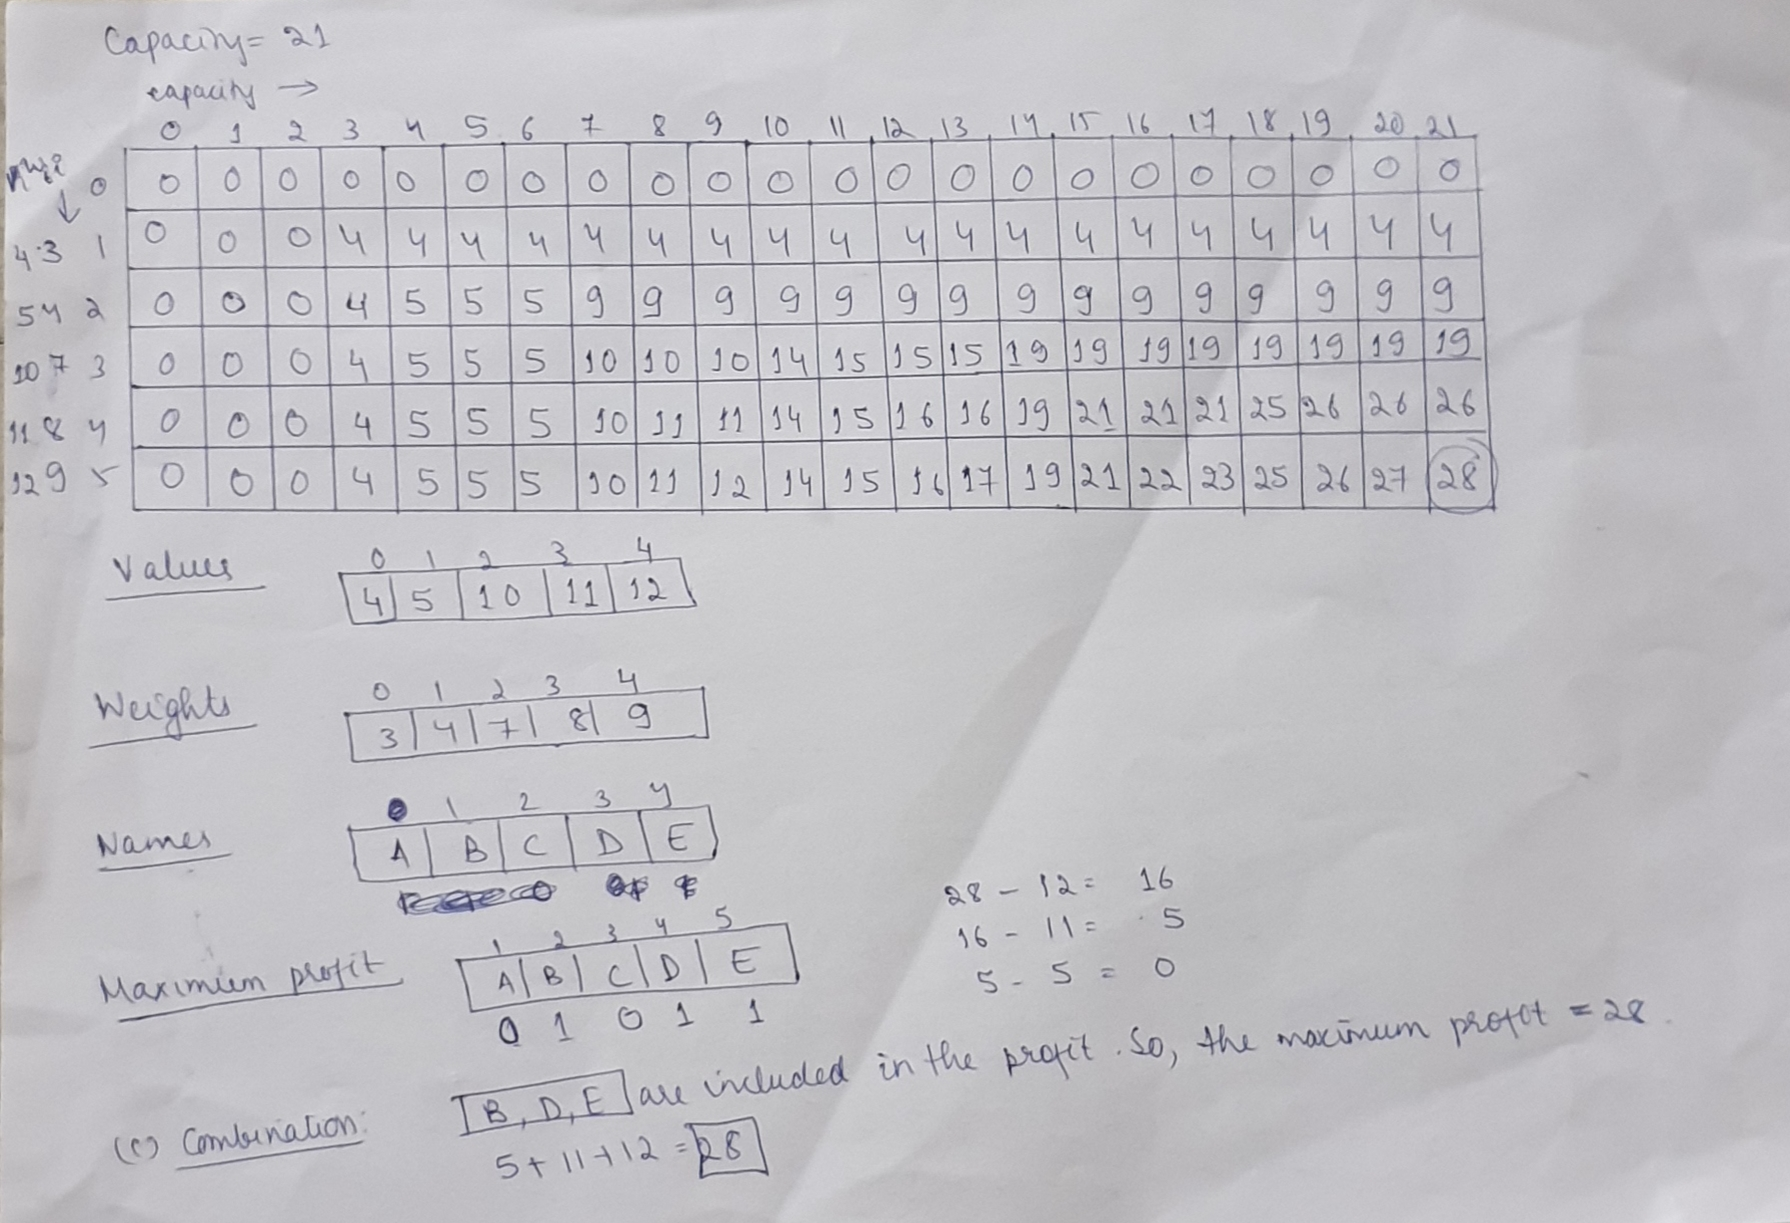 Capacity= 21
capacity →
0 1 2 3 4 5 6 7 8 9 10 11 12 13 14 15 16 17 18 19 20 21
0 0 0 0 0 0 0 0 0 0 0 0 0 0 0 0 0 0 0 0 0 0 0
↓
4 3 1 0 0 0 4 4 4 4 4 4 4 4 4 4 4 4 4 4 4 4 4 4 4
5 4 2 0 0 0 4 5 5 5 9 9 9 9 9 9 9 9 9 9 9 9 9 9 9
10 7 3 0 0 0 4 5 5 5 10 10 10 14 15 15 15 19 19 19 19 19 19 19 19
11 8 4 0 0 0 4 5 5 5 10 11 11 14 15 16 16 19 21 21 21 25 26 26 26
12 9 5 0 0 0 4 5 5 5 10 11 12 14 15 16 17 19 21 22 23 25 26 27 28
0 1 2 3 4
Values 4 5 10 11 12
0 1 2 3 4
Weights 3 4 7 8 9
0 1 2 3 4
Names A B C D E
28 - 12 = 16
16 - 11 = 5
5 - 5 = 0
1 2 3 4 5
Maximum profit A B C D E
0 1 0 1 1
(c) Combination: B, D, E are included in the profit. So, the maximum profit = 28.
5 + 11 + 12 = 28